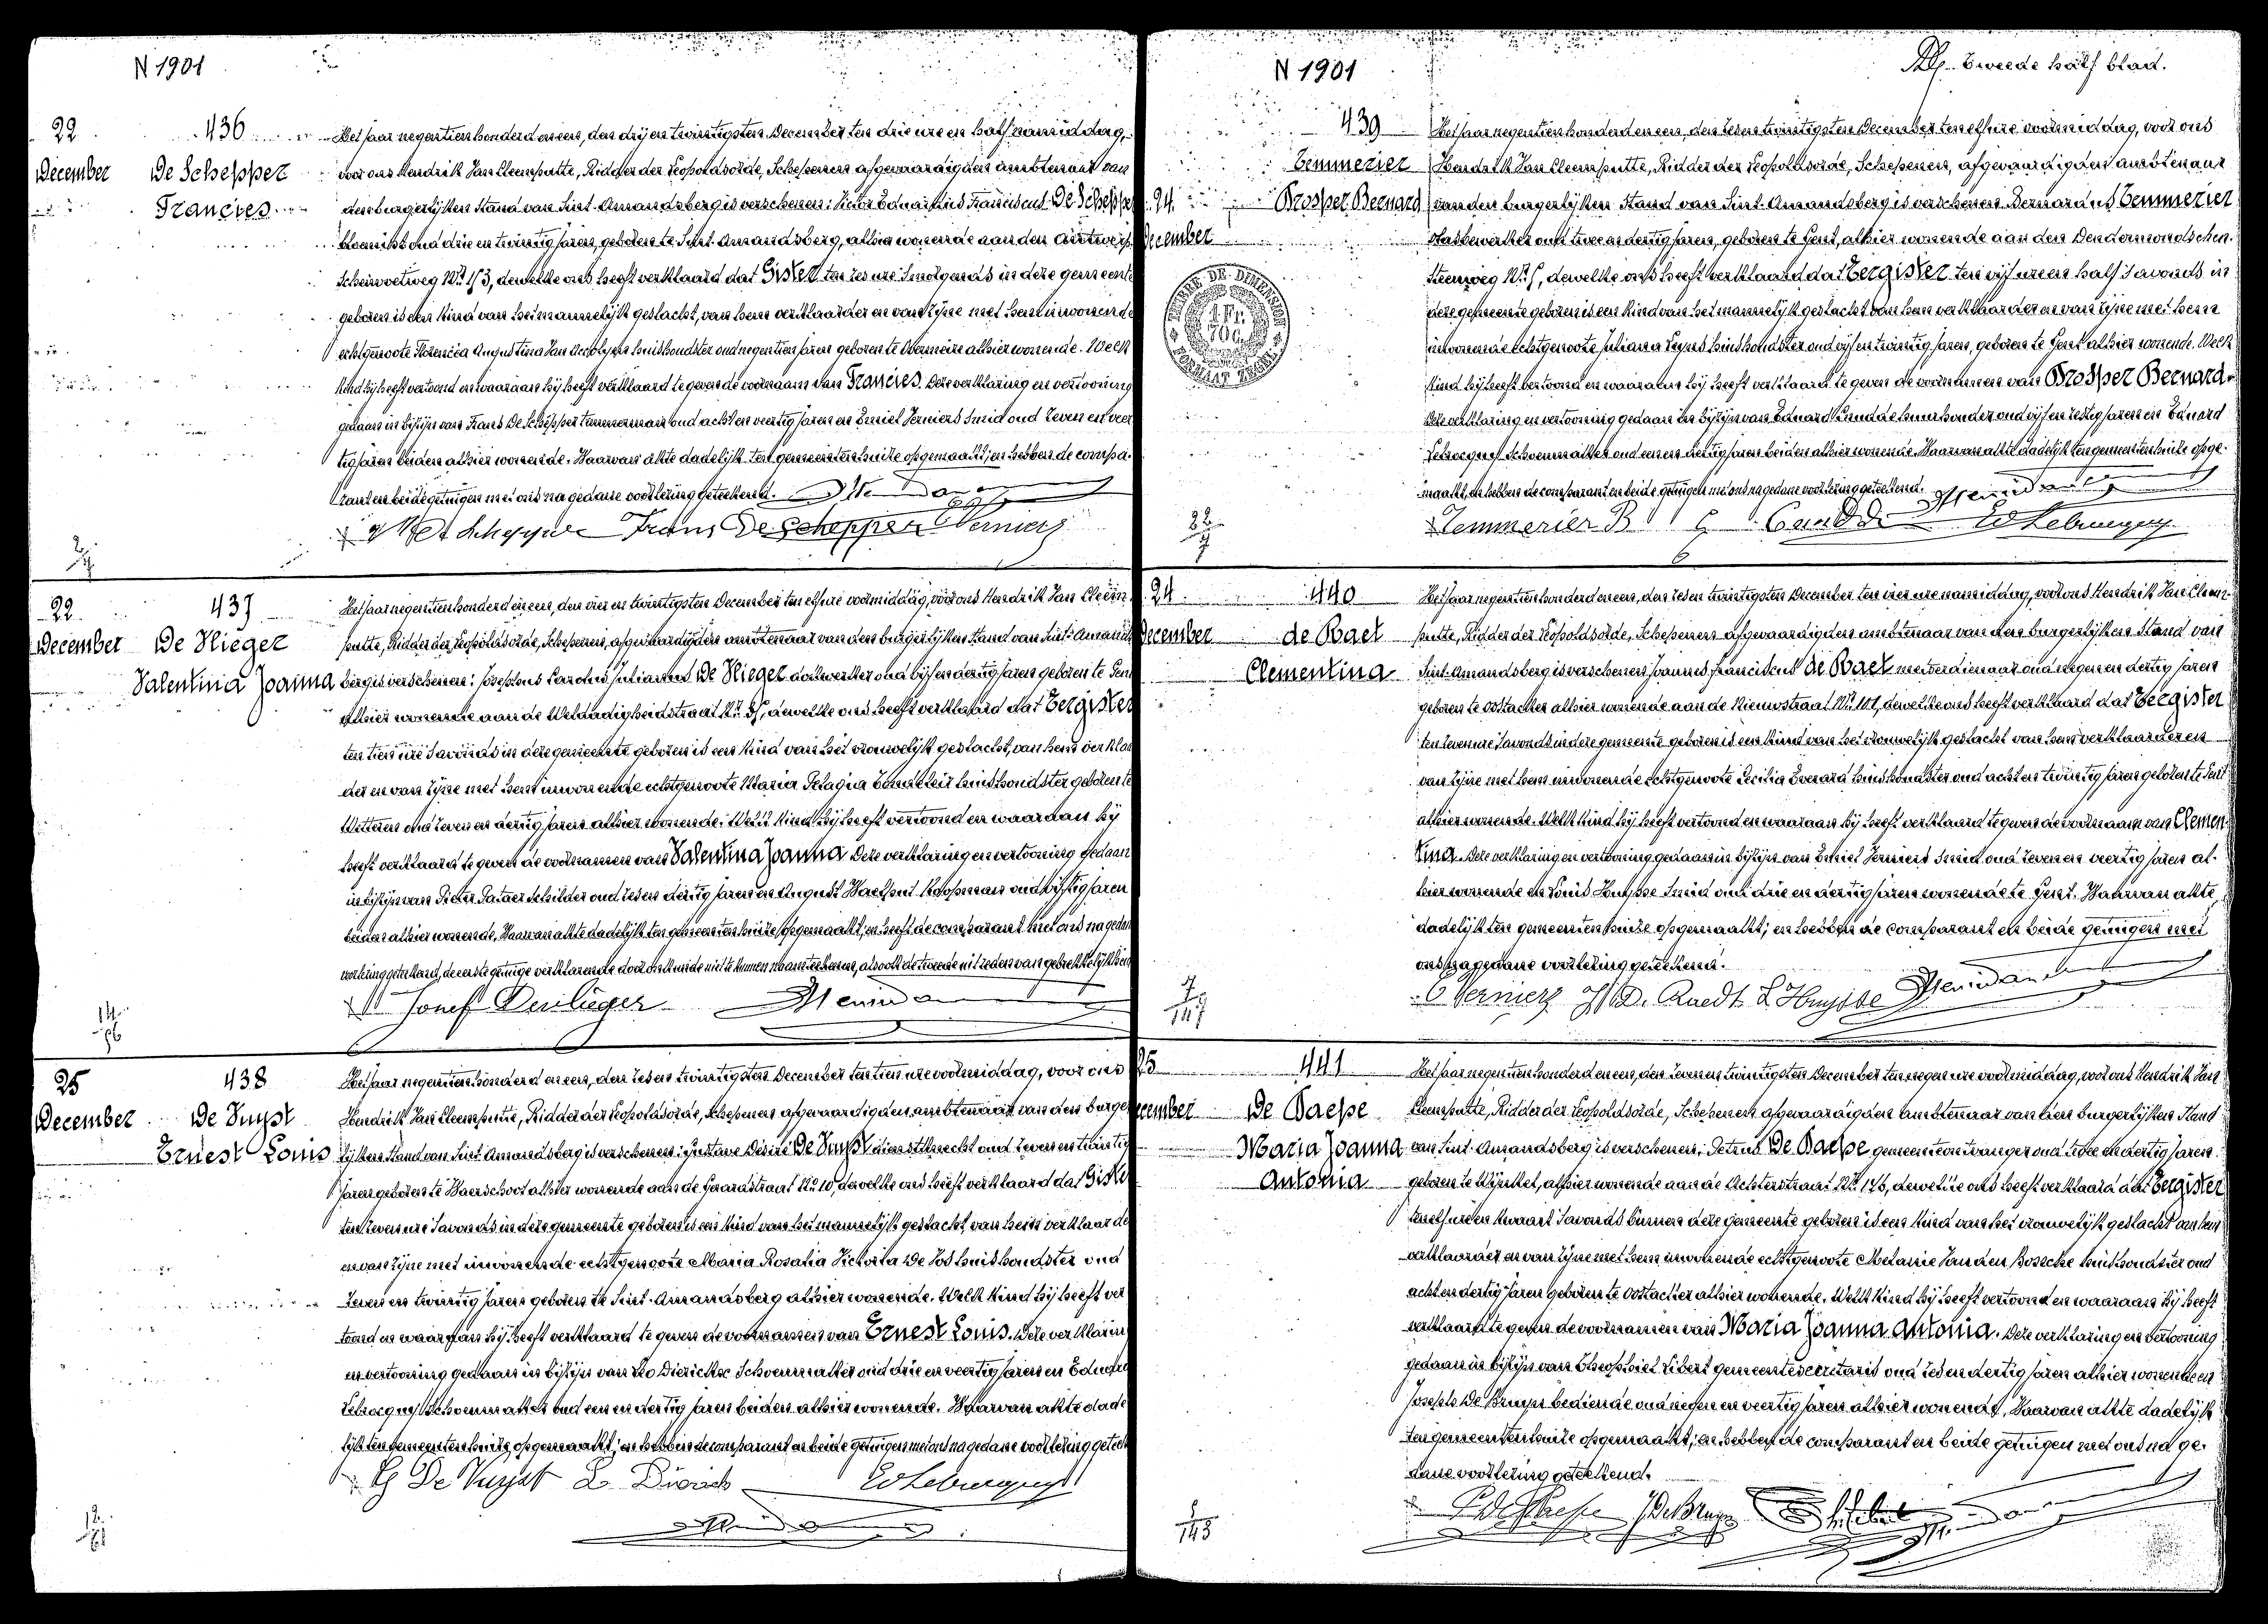 N 1901
22
December
436
De Schepper
Francies
Het jaar negentienhonderd en een, den drij en twintigsten December ten drie ure en half namiddag,
voor ons Hendrik Van Cleemputte, Ridder der Leopoldsorde, Schepenen afgevaardigden ambtenaar van
den burgerlijken Stand van Sint-Amandsberg is verschenen: Victor Eduardus Franciscus De Schepper
bloemist oud drie en twintig jaren, geboren te Sint-Amandsberg, alhier wonende aan den Antwerp.
Scheivoetweg Nr. 153, dewelke ons heeft verklaard dat Gister ten zes ure smorgends in deze gemeente
geboren is een kind van het mannelijk geslacht, van hem verklaarder en van zijne met hem inwonende
echtgenoote Florencia Augustina Van huishoudster oud negentien jaren geboren te Overmeire alhier wonende. Welk
kind hij heeft vertoond en waaraan hij heeft verklaard te geven de voornaam van Francies. Deze verklaring en vertooning
gedaan in bijzijn van Frans De Schepper timmerman oud acht en veertig jaren en Emiel Verniers smid oud zeven en veer
tig jaren beiden alhier wonende. Waarvan akte dadelijk ten gemeentenhuize opgemaakt; en hebben de compa-
rant en beide getuigen met ons na gedane voorlezing geteekend.
De Schepper Frans De Schepper E Verniers
22
December
437
De Vlieger
Valentina Joanna
Het jaar negentienhonderd en een, den vier en twintigsten December ten elf ure voormiddag, voor ons Hendrik Van Cleem
putte, Ridder der Leopoldsorde, Schepenen, afgevaardigden ambtenaar van den burgerlijken Stand van Sint-Amands
berg is verschenen: Josephus Carolus Julianus De Vlieger dokwerker oud vijf en dertig jaren geboren te Gent
alhier wonende aan de Weldadigheidstraat Nr. 35, dewelke ons heeft verklaard dat Eergister
ten tien ure savonds in deze gemeente geboren is een kind van het vrouwelijk geslacht, van hem verklaar
der en van zijne met hem inwonende echtgenoote Maria Pelagia huishoudster geboren te
Wetteren oud zeven en dertig jaren alhier wonende. Welk kind hij heeft vertoond en waaraan hij
heeft verklaard te geven de voornamen van Valentina Joanna. Deze verklaring en vertooning gedaan
in bijzijn van Pieter schilder oud zes en dertig jaren en August koopman oud vijftig jaren
beiden alhier wonende. Waarvan akte dadelijk ten gemeentenhuize opgemaakt; en heeft de comparant met ons na gedane
voorlezing geteekend, de eerste getuige verklarende door onkunde niet te kunnen naamteekenen, alsook de tweede uit reden van gebrekkelijkheid
Josef Devlieger
14
56
25
December
438
De Vuyst
Ernest Louis
Het jaar negentienhonderd en een, den zes en twintigsten December ten tien ure voormiddag, voor ons
Hendrik Van Cleemputte, Ridder der Leopoldsorde, Schepenen afgevaardigden ambtenaar van den burger
lijken Stand van Sint-Amandsberg is verschenen: Gustave Désiré De Vuyst dienstknecht oud zeven en twintig
jaren geboren te Waerschoot alhier wonende aan de Gerardstraat Nr. 10, dewelke ons heeft verklaard dat Gister
ten zeven ure savonds in deze gemeente geboren is een kind van het mannelijk geslacht, van hem verklaarder
en van zijne met inwonende echtgenoote Maria Rosalia Victoria De Vos huishoudster oud
zeven en twintig jaren geboren te Sint-Amandsberg alhier wonende. Welk kind hij heeft ver
toond en waaraan hij heeft verklaard te geven de voornamen van Ernest Louis. Deze verklaring
en vertooning gedaan in bijzijn van Leo Dierickx Schoenmaker oud drie en veertig jaren en Eduard
Lebrocquy schoenmaker oud een en dertig jaren beiden alhier wonende. Waarvan akte dade
lijk ten gemeentenhuize opgemaakt; en hebben de comparant en beide getuigen met ons na gedane voorlezing geteek
G De Vuyst L Diericks Ed Lebrocquy
N 1901
Tweede half blad.
24
December
439
Temmerier
Prosper Bernard
TIMBRE DE DIMENSION
1 Fr.
70 C.
FORMAAT ZEGEL
Het jaar negentienhonderd en een, den zes en twintigsten December ten elf ure voormiddag, voor ons
Hendrik Van Cleemputte, Ridder der Leopoldsorde, Schepenen, afgevaardigden ambtenaar
van den burgerlijken Stand van Sint-Amandsberg is verschenen Bernardus Temmerier
vlasbewerker oud twee en dertig jaren, geboren te Gent, alhier wonende aan den Dendermondschen
steenweg Nr. 5, dewelke ons heeft verklaard dat Eergister ten vijf ure en half savonds in
deze gemeente geboren is een kind van het mannelijk geslacht van hem verklaarder en van zijne met hem
inwonende echtgenoote Juliana Feyns huishoudster oud vijf en twintig jaren, geboren te Gent alhier wonende. Welk
kind hij heeft vertoond en waaraan hij heeft verklaard te geven de voornamen van Prosper Bernard
Deze verklaring en vertooning gedaan in bijzijn van Eduard huurhouder oud vijf en zestig jaren en Eduard
Lebrocquy schoenmaker oud een en dertig jaren beiden alhier wonende. Waarvan akte dadelijk ten gemeentenhuize opge-
maakt, en hebben de comparant en beide getuigen met ons na gedane voorlezing geteekend.
Temmerier B Ed Lebrocquy
24
December
440
de Raet
Clementina
Het jaar negentienhonderd en een, den zes en twintigsten December ten vier ure namiddag, voor ons Hendrik Van Cleem-
putte, Ridder der Leopoldsorde, Schepenen afgevaardigden ambtenaar van den burgerlijken Stand van
Sint-Amandsberg is verschenen Joannes Franciscus de Raet meesterdienaar oud negen en dertig jaren
geboren te Oostacker alhier wonende aan de Nieuwstraat Nr. 101, dewelke ons heeft verklaard dat Eergister
ten zeven ure savonds in deze gemeente geboren is een kind van het vrouwelijk geslacht van hem verklaarder en
van zijne met hem inwonende echtgenoote Cecilia Everard huishoudster oud acht en twintig jaren geboren te Gent
alhier wonende. Welk kind hij heeft vertoond en waaraan hij heeft verklaard te geven de voornaam van Clemen-
tina. Deze verklaring en vertooning gedaan in bijzijn van Emiel Verniers smid oud zeven en veertig jaren al-
hier wonende en Louis Huysse smid oud drie en dertig jaren wonende te Gent. Waarvan akte
dadelijk ten gemeentenhuize opgemaakt; en hebben de comparant en beide getuigen met
ons na gedane voorlezing geteekend.
E Verniers D. Raedt L Huysse
7
147
25
December
441
De Paepe
Maria Joanna
Antonia
Het jaar negentienhonderd en een, den zeven en twintigsten December ten negen ure voormiddag, voor ons Hendrik Van
Cleemputte, Ridder der Leopoldsorde, Schepenen afgevaardigden ambtenaar van den burgerlijken Stand
van Sint-Amandsberg is verschenen: Petrus De Paepe gemeenteontvanger oud twee en dertig jaren
geboren te Wynkel, alhier wonende aan de Achterstraat Nr. 176, dewelke ons heeft verklaard dat Eergister
ten elf ure en kwaart savonds binnen deze gemeente geboren is een kind van het vrouwelijk geslacht van hem
verklaarder en van zijne met hem inwonende echtgenoote Melanie Van den Bossche huishoudster oud
acht en dertig jaren geboren te Oostacker alhier wonende. Welk kind hij heeft vertoond en waaraan hij heeft
verklaard te geven de voornamen van Maria Joanna Antonia. Deze verklaring en vertooning
gedaan in bijzijn van Theophiel Libert gemeentesecretaris oud zes en dertig jaren alhier wonende en
Joseph De Bruyn bediende oud negen en veertig jaren alhier wonende. Waarvan akte dadelijk
ten gemeentenhuize opgemaakt; en hebben de comparant en beide getuigen met ons na ge-
dane voorlezing geteekend.
P De Paepe J De Bruyn
1
143